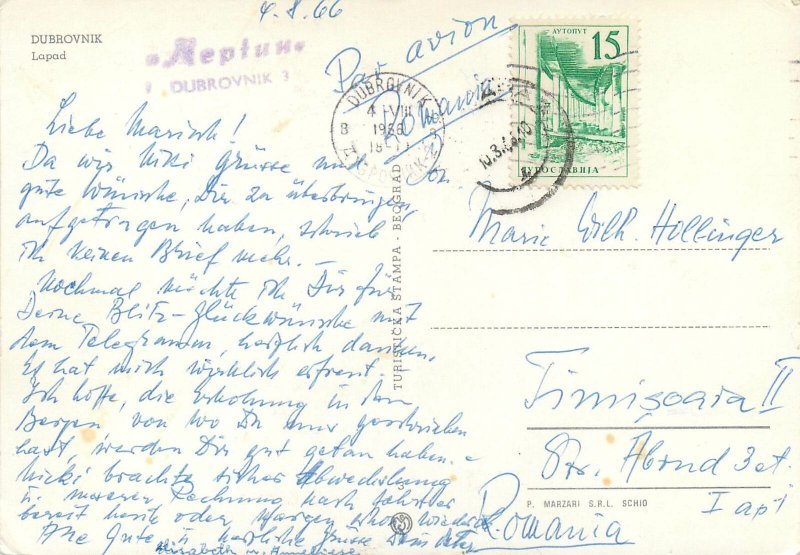 4.8.66
DUBROVNIK
Lapad
"Neptun"
DUBROVNIK 3
Par avion
Romania
DUBROVNIK
4 VIII
1966
18
АУТОПУТ
15
ЈУГОСЛАВИЈА
Liebe Marisch!
Da wir Nicki Grüsse und
gute Wünsche, Dir zu überbringen,
aufgetragen haben, schrieb
ich keinen Brief mehr. –
Nochmal möchte ich Dir für
Deine Blitz-Glückwünsche mit
dem Telegramm, herzlich danken.
Es hat mich wirklich erfreut. –
Ich hoffe, die Erholung in den
Bergen von wo Du mir geschrieben
hast, werden Dir gut getan haben. –
Nicki brachte sicher Abwechslung
u. unserer Rechnung nach fährt er
bereit heute oder morgen schon wieder
Alle Gute u. herzliche Grüsse
Elisabeth u. Anneliese
TURISTIČKA ŠTAMPA - BEOGRAD
Marie Wilh. Hollinger
Timişoara II
Str. Abrud 3 et.
I ap 1
P. MARZARI S.R.L. SCHIO
Romania